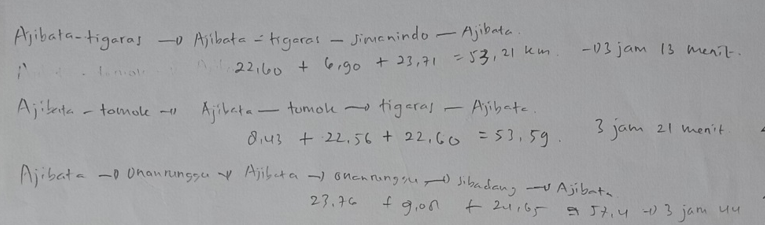 Ajibata-tigaras → Ajibata - tigaras - Simanindo - Ajibata.
22,60 + 6,90 + 23,71 = 53,21 km. → 3 jam 13 menit.
Ajibata - tomok → Ajibata - tomok → tigaras - Ajibata.
8,43 + 22,56 + 22,60 = 53,59. 3 jam 21 menit.
Ajibata → Onanrunggu → Ajibata → onanrunggu → Sibadang → Ajibata
23,76 + 9,01 + 24,65 = 57,4 → 3 jam 44